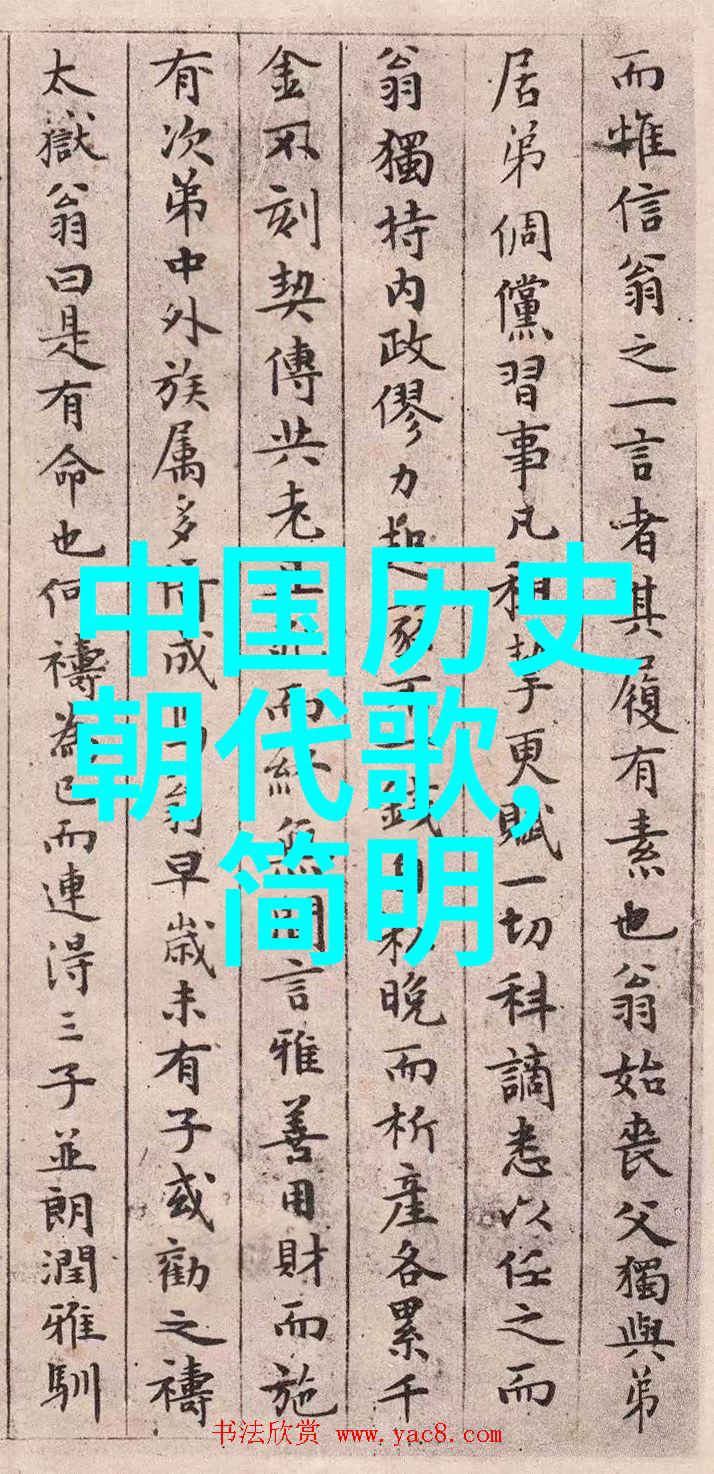 而惟信翁之一言者其履有素也翁始喪父獨與弟
居弟倜儻習事凡租挈更賦一切科謫悉以任之而
翁獨持内政僇力起家不錢自私晚而析產各累千
金不刻契傅共老而終無間言雅善用財而施
有次第中外族属多所成翁早歲未有子或勸之禱
太獄翁曰是有命也何禱為已而連淂三子並朗潤雅馴
中国历史
朝代歌，
简明
书法欣赏 www.yac8.com